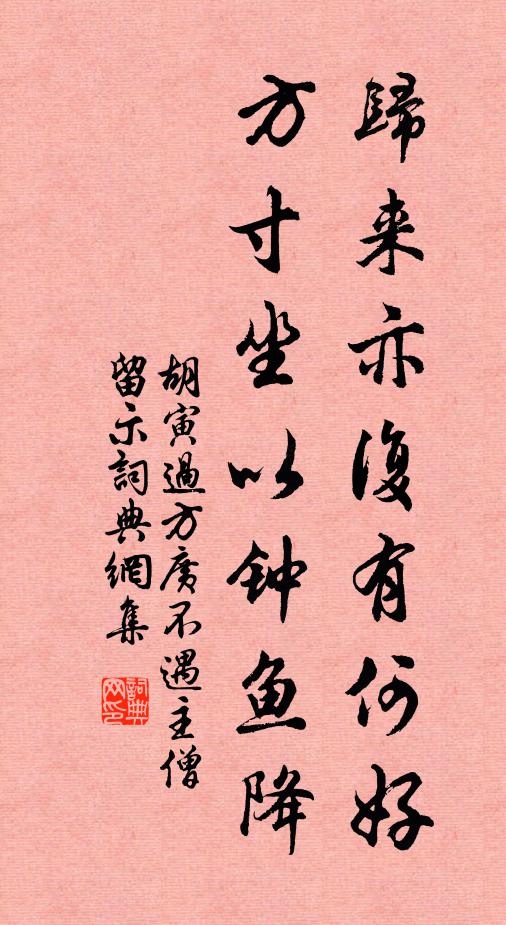 歸来亦復有何好
方寸坐以钟魚降
胡寅過方廣不遇主僧
留示詞典網集
詞典
网印